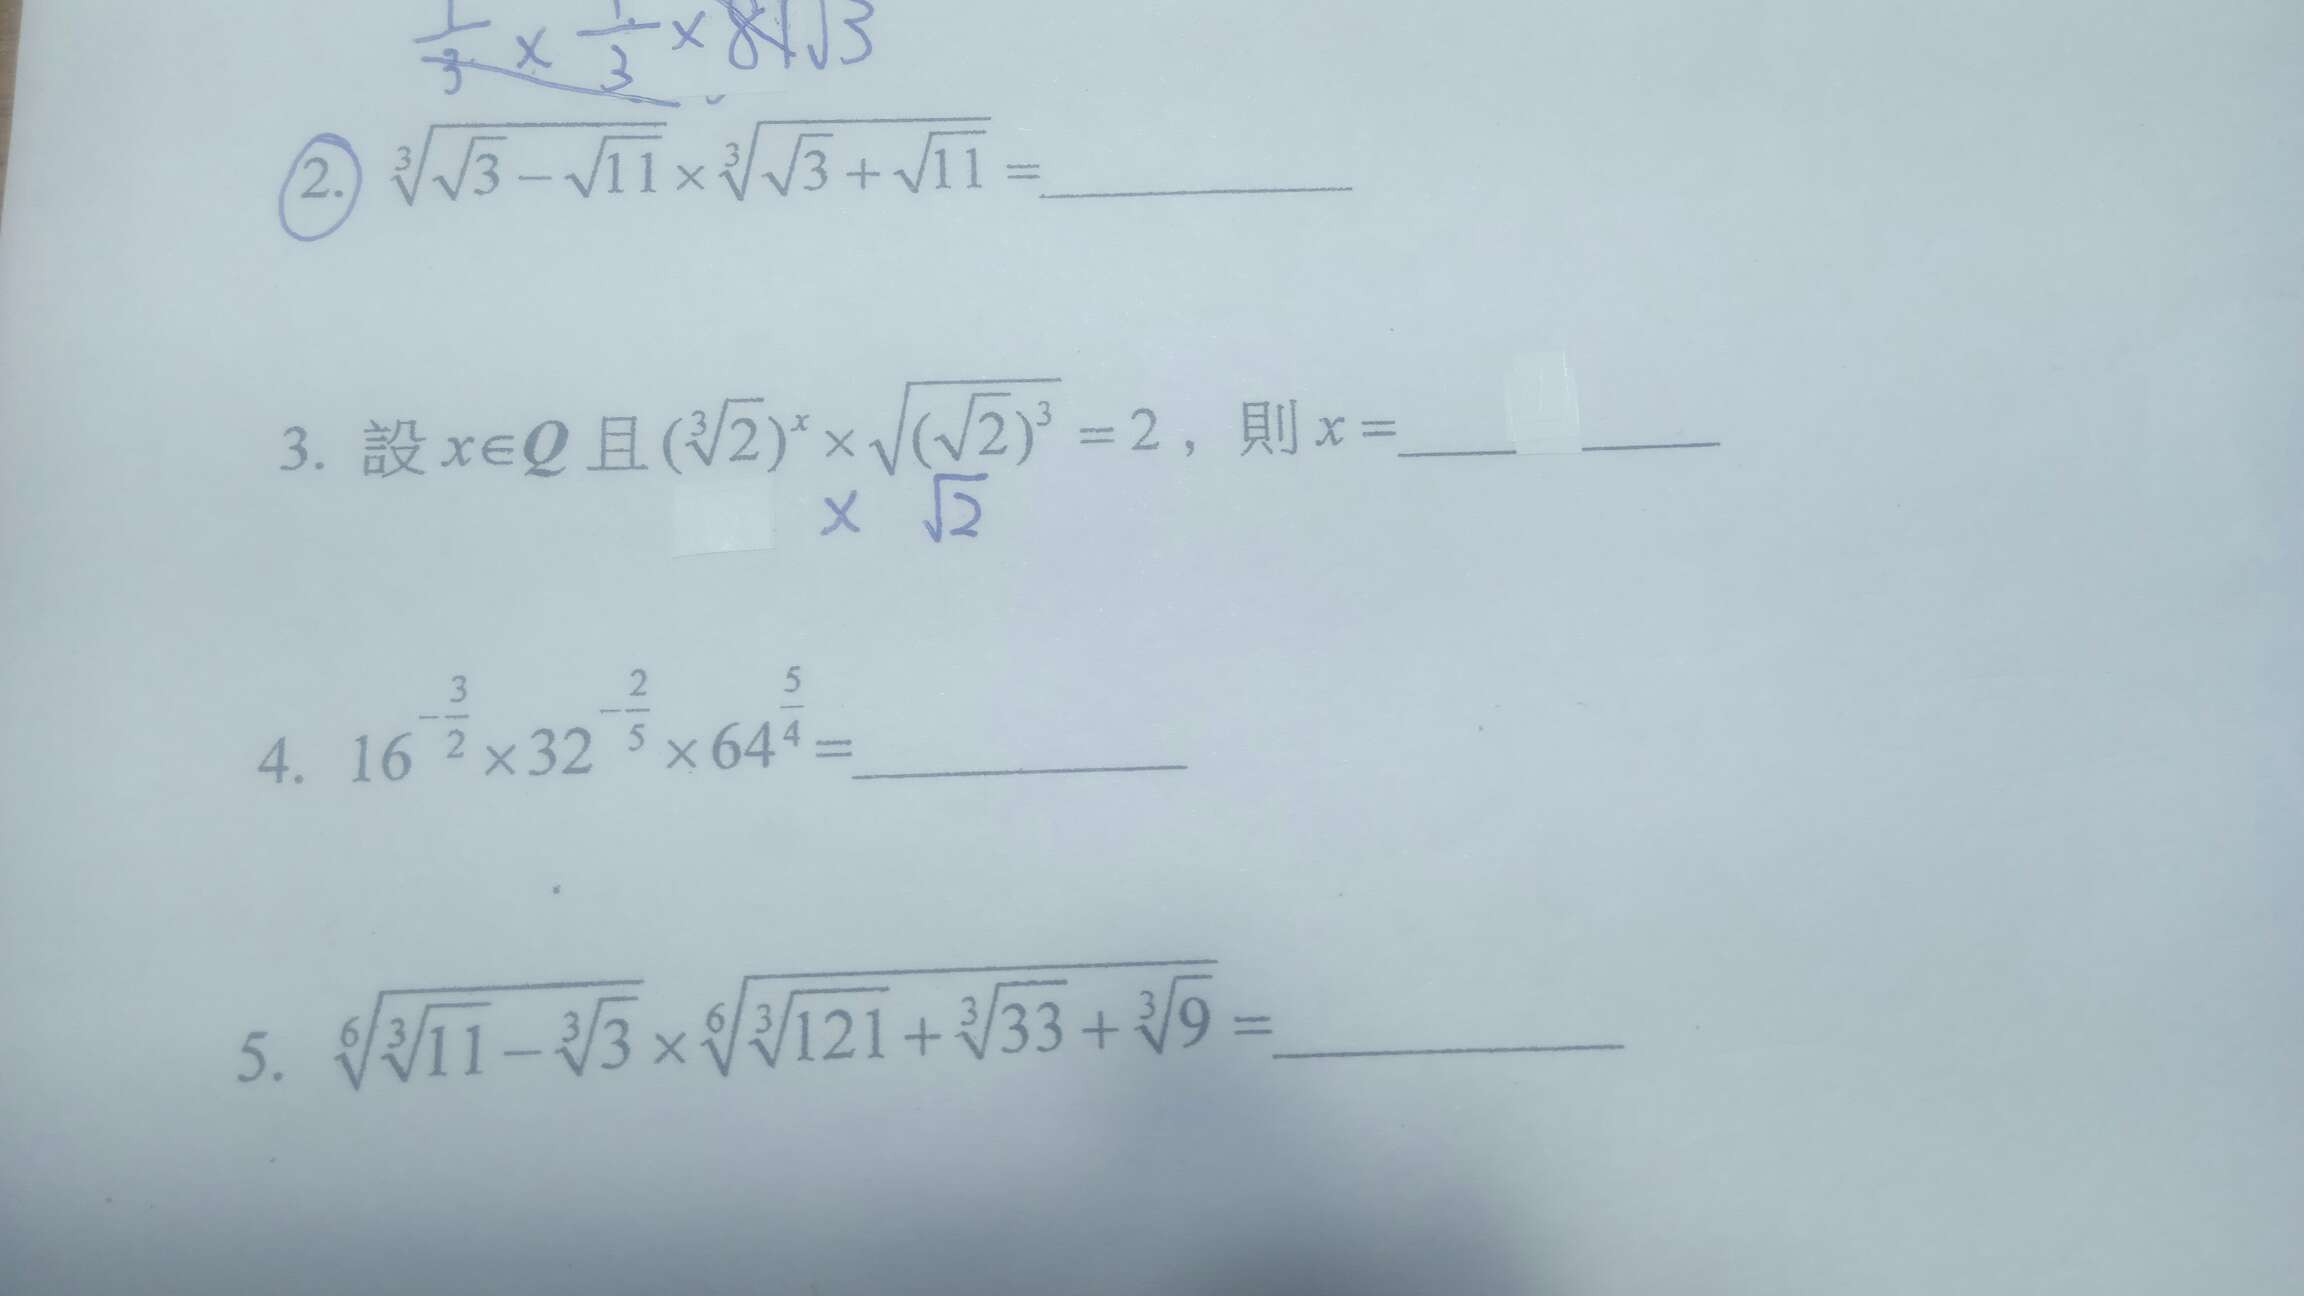 1/3 × 1/3 × 81√3
2. ∛(√3 − √11) × ∛(√3 + √11) = ________
3. 設 x∈Q 且 (∛2)ˣ × √((√2)³) = 2，則 x = ________
× √2
4. 16^(−3/2) × 32^(−2/5) × 64^(5/4) = ________
5. ⁶√(∛11 − ∛3) × ⁶√(∛121 + ∛33 + ∛9) = ________